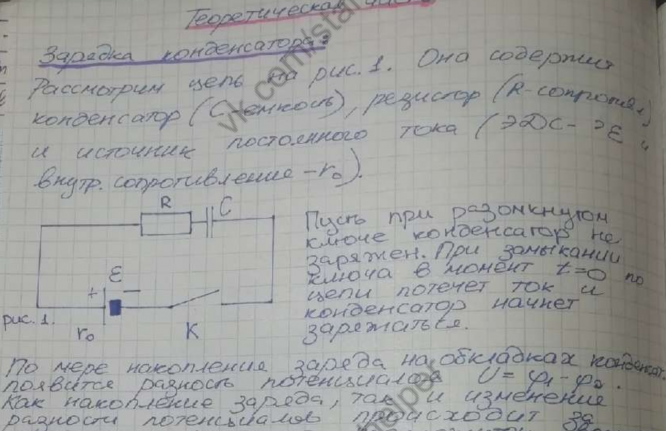 Теоретическая
Зарядка конденсатора.
Рассмотрим цепь на рис. 1. Она содержит
конденсатор (C-емкость), резистор (R-сопротивл.)
и источник постоянного тока (ЭДС- ℰ и
внутр. сопротивление -r₀).
R
C
Пусть при разомкнутом
ключе конденсатор не
заряжен. При замыкании
ключа в момент t=0 по
цепи потечет ток и
конденсатор начнет
заряжаться.
ℰ
+ −
рис. 1.
r₀
K
По мере накопления заряда на обкладках конденсат.
появится разность потенциалов U = φ₁ - φ₂.
Как накопление заряда, так и изменение
разности потенциалов происходит за
vk.com/stu
helper